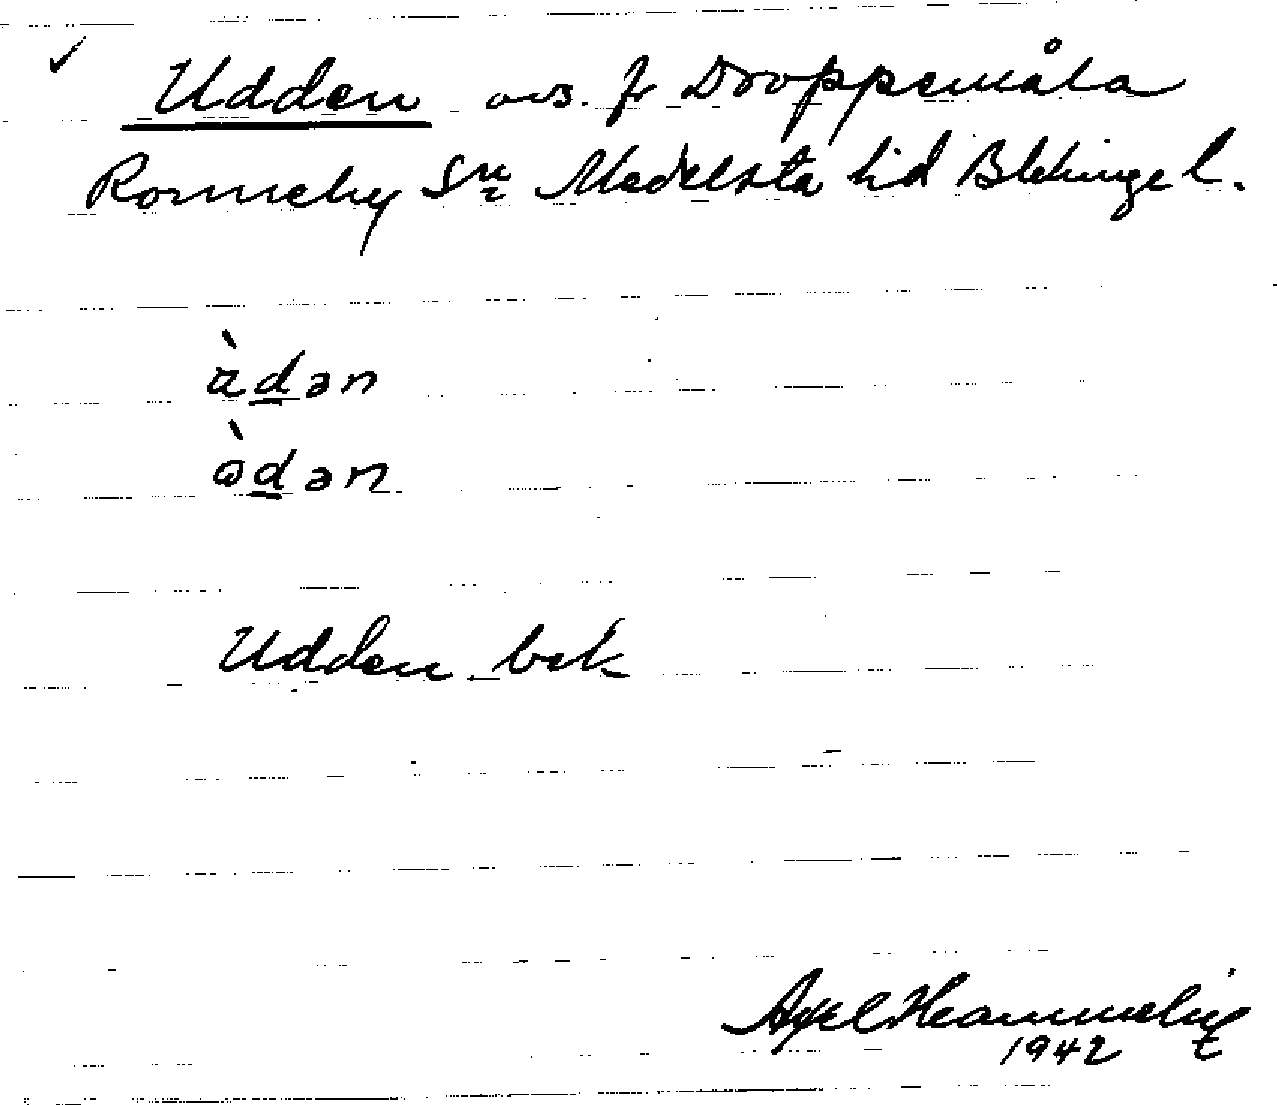 ✓ Udden avs. fr Droppemåla
Ronneby Sn Medelsta hd Blekinge l.
àdən
òdən
Udden bek
Axel
1942